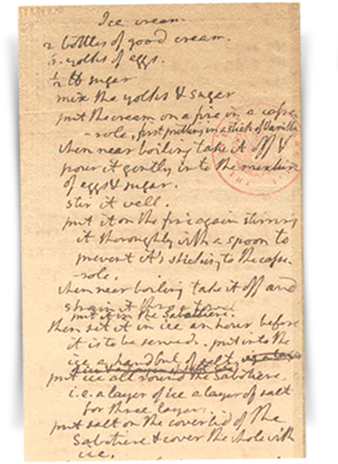 Ice cream.
2. bottles of good cream.
6. yolks of eggs.
½ ℔ sugar
mix the yolks & sugar
put the cream on a fire in a casse
-role, first putting in a stick of Vanilla.
when near boiling take it off &
pour it gently into the mixture
of eggs & sugar.
stir it well.
put it on the fire again stirring
it thoroughly with a spoon to
prevent it's sticking to the casse
-role.
when near boiling take it off and
strain it thro' a towel.
put it in the Sabottiere.
then set it in ice an hour before
it is to be served. put into the
ice a handful of salt.
put ice all round the Sabottiere.
i.e. a layer of ice a layer of salt
for three layers.
put salt on the coverlid of the
Sabotiere & cover the whole with
ice.